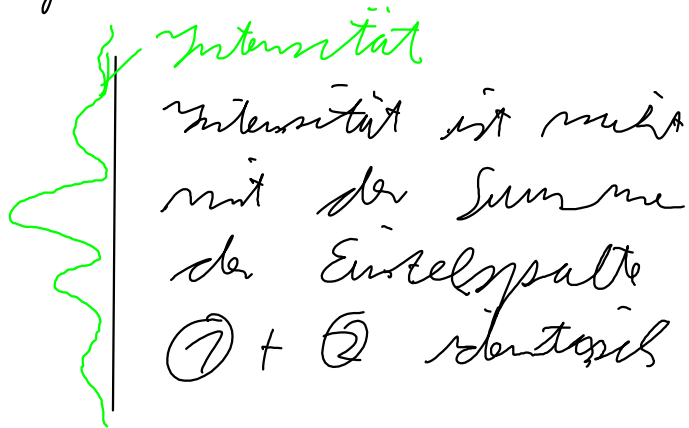 Intensität
Intensität ist nicht
mit der Summe
der Einzelspalte
① + ② identisch